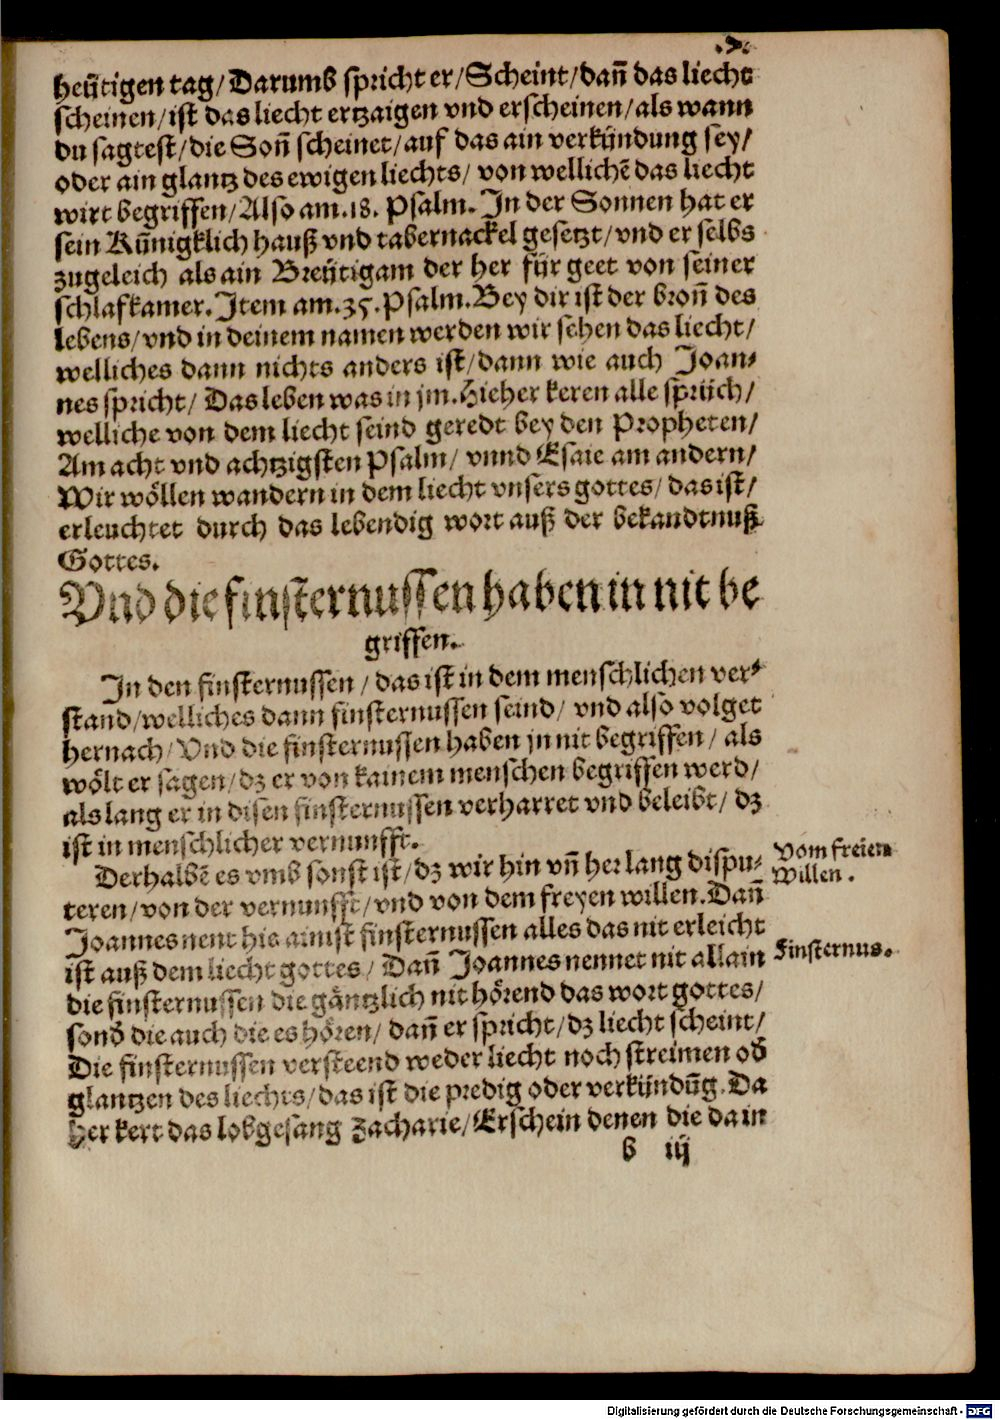 heütigen tag/ Darumb spricht er/ Scheint/ dañ das liecht
scheinen/ ist das liecht ertzaigen vnd erscheinen/ als wann
du sagtest/ die Soñ scheinet/ auf das ain verkündung sey/
oder ain glantz des ewigen liechts/ von wellichẽ das liecht
wirt begriffen/ Also am .18. Psalm. In der Sonnen hat er
sein Künigklich hauß vnd tabernackel gesetzt/ vnd er selbs
zugeleich als ain Breütigam der her für geet von seiner
schlafkamer. Item am .35. Psalm. Bey dir ist der broñ des
lebens/ vnd in deinem namen werden wir sehen das liecht/
welliches dann nichts anders ist/ dann wie auch Joan-
nes spricht/ Das leben was in jm. Hieher keren alle sprüch/
welliche von dem liecht seind geredt bey den Propheten/
Am acht vnd achtzigsten Psalm/ vnnd Esaie am andern/
Wir wöllen wandern in dem liecht vnsers gottes/ das ist/
erleuchtet durch das lebendig wort auß der bekandtnuß
Gottes.
Vnd die finsternussen haben in nit be
griffen.
In den finsternussen/ das ist in dem menschlichen ver-
stand/ welliches dann finsternussen seind/ vnd also volget
hernach/ Vnd die finsternussen haben jn nit begriffen/ als
wölt er sagen/ dz er von kainem menschen begriffen werd/
als lang er in disen finsternussen verharret vnd beleibt/ dz
ist in menschlicher vernunfft.
Derhalbẽ es vmb sonst ist/ dz wir hin vñ her lang dispu-
teren/ von der vernunfft/ vnd von dem freyen willen. Dañ
Joannes nent hie ainist finsternussen alles das nit erleicht
ist auß dem liecht gottes/ Dañ Joannes nennet nit allain
die finsternussen die gäntzlich nit hörend das wort gottes/
sonđ die auch die es hören/ dañ er spricht/ dz liecht scheint/
Die finsternussen versteend weder liecht noch streimen ođ
glantzen des liechts/ das ist die predig oder verkündũg. Da
her kert das lobgesang Zacharie/ Erschein denen die da in
b iij
Vom freien
Willen.
Finsternus.
Digitalisierung gefördert durch die Deutsche Forschungsgemeinschaft - DFG